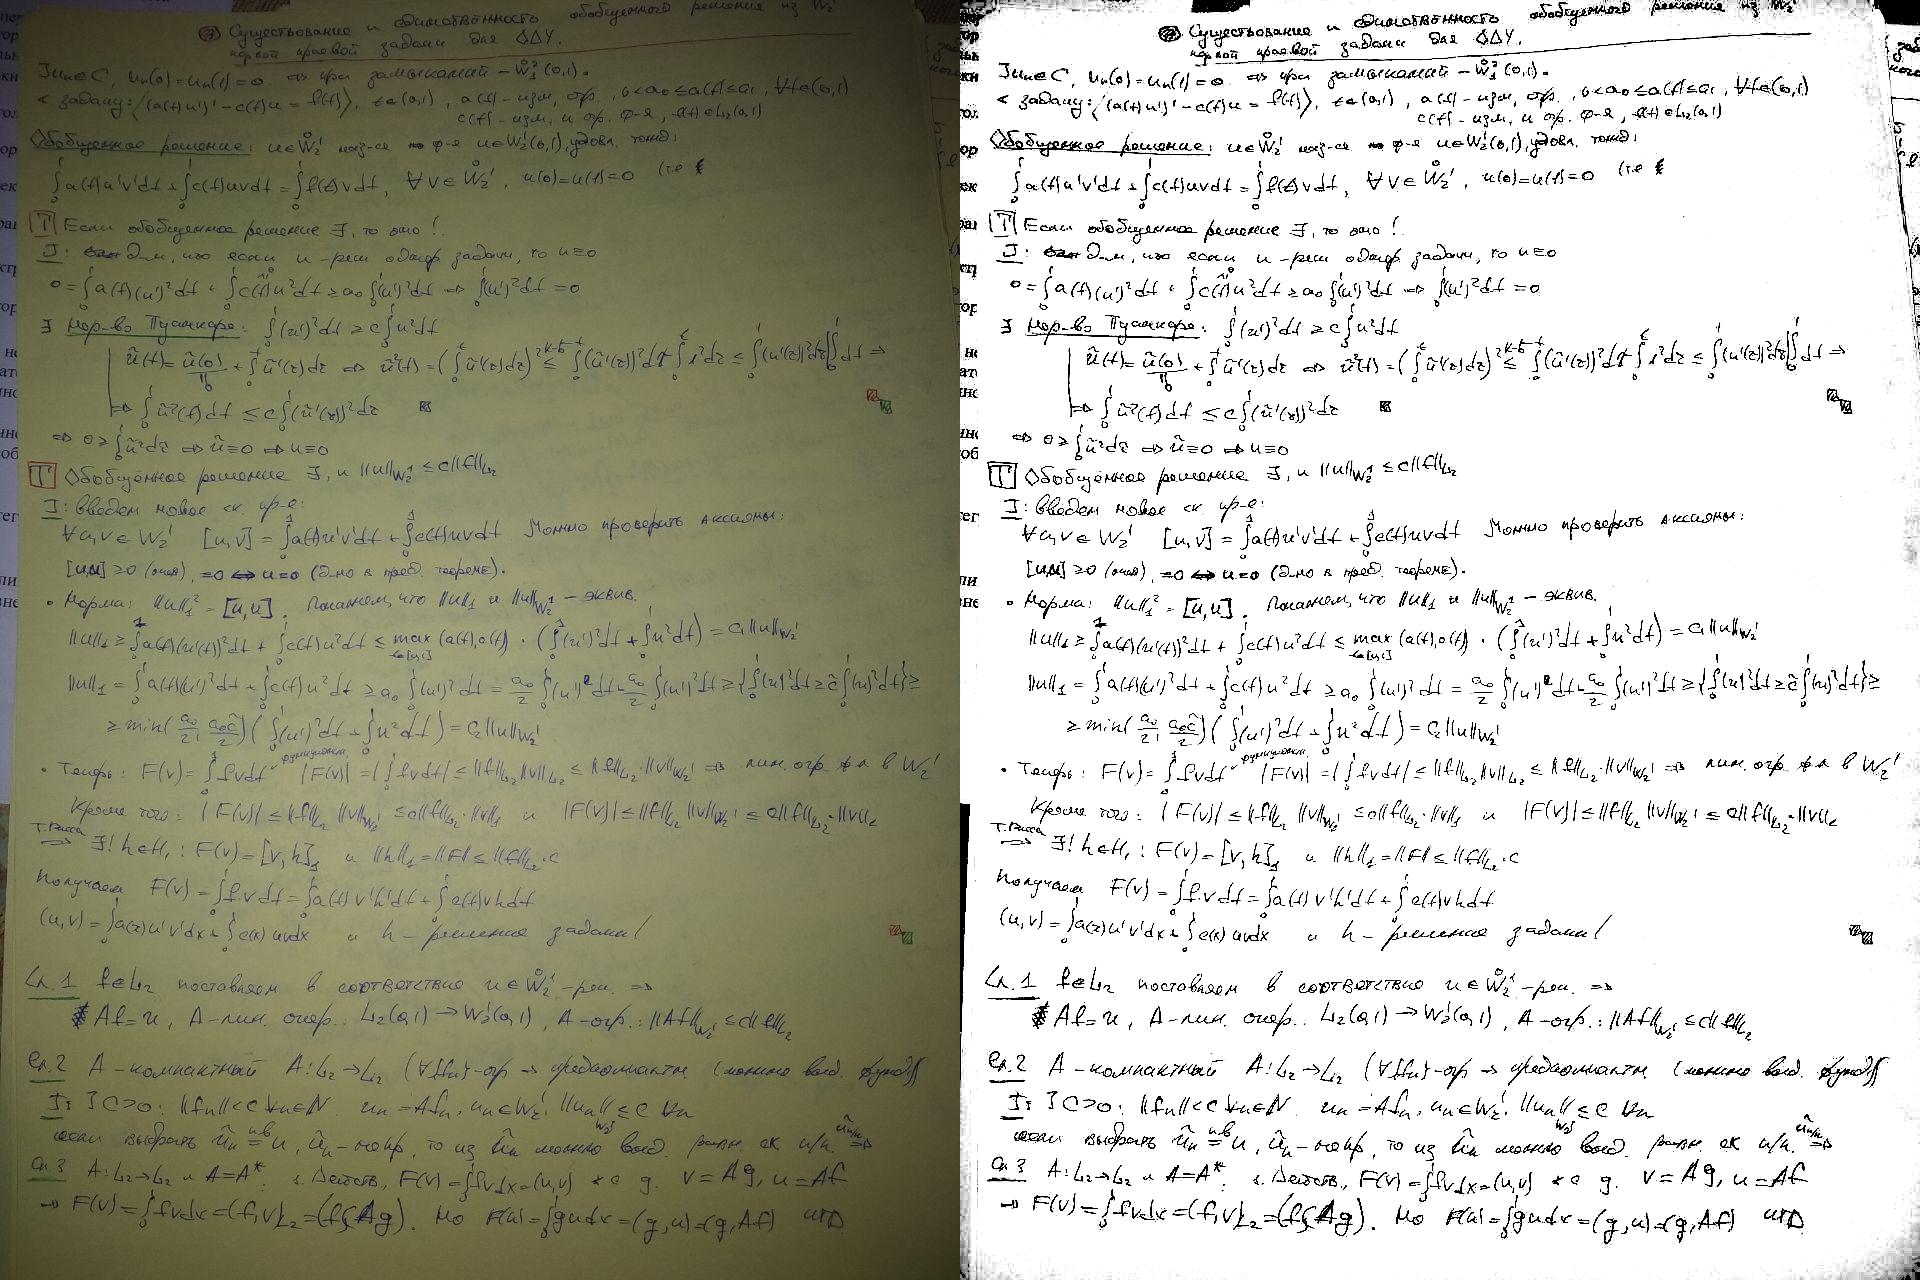 Существование и единственность обобщенного решения из W₂¹
первой краевой задачи для ОДУ.
∃ uₙ∈C, uₙ(0)=uₙ(1)=0 ⇒ при замыкании – W̊₂¹(0,1).
< задачу: ⟨(a(t)u')' - c(t)u = f(t)⟩, t∈(0,1), a(t) - изм, огр., 0<a₀≤a(t)≤a₁, ∀t∈(0,1)
c(t) - изм, и огр. ф-я, f(t)∈L₂(0,1)
Обобщенное решение: u∈W̊₂¹ наз-ся ф-я u∈W₂¹(0,1), удовл. тожд:
∫₀¹a(t)u'v'dt + ∫₀¹c(t)uvdt = ∫₀¹f(t)vdt, ∀v∈W̊₂¹, u(0)=u(1)=0 (т.е
T Если обобщенное решение ∃, то оно !
Д: Д-м, что если u - реш однор задачи, то u≡0
0=∫₀¹a(t)(u')²dt + ∫₀¹c(t)u²dt ≥ a₀∫₀¹(u')²dt ⇒ ∫₀¹(u')²dt=0
∃ Нер-во Пуанкаре: ∫₀¹(u')²dt ≥ c∫₀¹u²dt
ũ(t)=ũ(0)+∫₀ᵗũ'(τ)dτ ⇒ ũ²(t)=(∫₀ᵗũ'(τ)dτ)² ≤ ∫₀ᵗ(ũ'(τ))²dτ ∫₀ᵗ1²dτ ≤ ∫₀¹(u'(τ))²dτ ∫₀¹dt ⇒
⇒ ∫₀¹ũ²(t)dt ≤ c∫₀¹(ũ'(τ))²dτ
⇒ 0 ≥ ∫₀¹ũ²dτ ⇒ ũ≡0 ⇒ u≡0
T Обобщённое решение ∃, и ||u||_W₂¹ ≤ c||f||_L₂
Д: введем новое ск. пр-е:
∀u,v∈W₂¹ [u,v] = ∫₀¹a(t)u'v'dt + ∫₀¹c(t)uvdt Можно проверить аксиомы:
[u,u] ≥0 (очев), =0 ⇔ u=0 (д-но в пред. теореме).
• Норма: ||u||₁² = [u,u]. Покажем, что ||u||₁ и ||u||_W₂¹ – эквив.
||u||₁ ≥ ∫₀¹a(t)(u'(t))²dt + ∫₀¹c(t)u²dt ≤ max (a(t),c(t)) · (∫₀¹(u')²dt + ∫₀¹u²dt) = c₁||u||_W₂¹
||u||₁ = ∫₀¹a(t)(u')²dt + ∫₀¹c(t)u²dt ≥ a₀∫₀¹(u')²dt = a₀/2 ∫₀¹(u')²dt + a₀/2 ∫₀¹(u')²dt ≥ {∫₀¹(u')²dt ≥ c̃∫₀¹(u)²dt} ≥
≥ min(a₀/2, a₀c̃/2)(∫₀¹(u')²dt + ∫₀¹u²dt) = c₂||u||_W₂¹
• Теперь: F(v)=∫₀¹fvdt - функционал |F(v)|=|∫₀¹fvdt| ≤ ||f||_L₂||v||_L₂ ≤ ||f||_L₂·||v||_W₂¹ ⇒ лин. огр. ф-л в W₂¹
Кроме того: |F(v)| ≤ ||f||_L₂ ||v||_W₂¹ ≤ c||f||_L₂·||v||₁ и |F(v)| ≤ ||f||_L₂ ||v||_W₂¹ ≤ c||f||_L₂·||v||₂
Т.Рисса ⇒ ∃! h∈H₁: F(v)=[v,h]₁ и ||h||₁=||F|| ≤ ||f||_L₂·c
Получаем F(v)=∫₀¹f·vdt=∫₀¹a(t)v'h'dt + ∫₀¹c(t)vhdt
(u,v)=∫₀¹a(x)u'v'dx + ∫₀¹c(x)uvdx и h – решение задачи!
Сл.1 f∈L₂ поставляем в соответствие u∈W̊₂¹ - реш. ⇒
Af=u, A - лин. опер.: L₂(0,1)→W₂¹(0,1), A - огр.: ||Af||_W₂¹ ≤ c||f||_L₂
Сл.2 A - компактный A:L₂→L₂ (∀{fₙ} - огр → предкомпактн (можно выд. фунд))
Д: ∃C>0: ||fₙ||<C ∀n∈N. uₙ=Afₙ, uₙ∈W₂¹, ||uₙ||_W₂¹ ≤ C ∀n
если выбрать ũₙ = u, ũₙ - непр, то из ũₙ можно выд. равн. сх п/п.
Сл.3 A:L₂→L₂ и A=A*. Действ, F(v)=∫₀¹fvdx=(u,v) g. v=Ag, u=Af
⇒ F(v)=∫₀¹fvdx=(f,v)_L₂=(f,Ag). Но F(u)=∫₀¹gudx=(g,u)=(g,Af) чтд